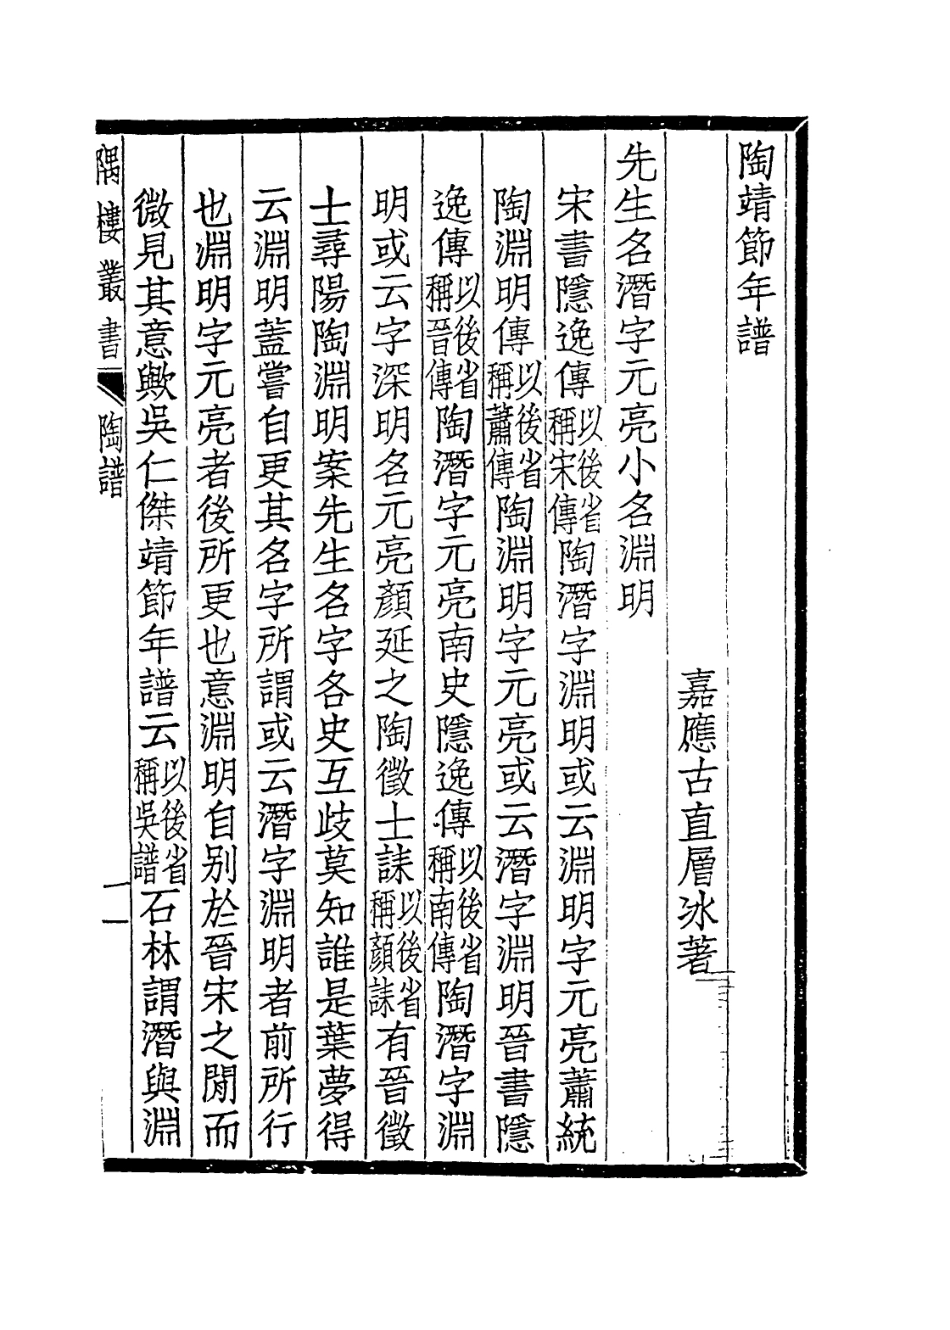 陶靖節年譜
嘉應古直層冰著
先生名潛字元亮小名淵明
宋書隱逸傳以後省稱宋傳陶潛字淵明或云淵明字元亮蕭統
陶淵明傳以後省稱蕭傳陶淵明字元亮或云潛字淵明晉書隱
逸傳以後省稱晉傳陶潛字元亮南史隱逸傳以後省稱南傳陶潛字淵
明或云字深明名元亮顏延之陶徵士誄以後省稱顏誄有晉徵
士尋陽陶淵明案先生名字各史互歧莫知誰是葉夢得
云淵明蓋嘗自更其名字所謂或云潛字淵明者前所行
也淵明字元亮者後所更也意淵明自別於晉宋之閒而
微見其意歟吳仁傑靖節年譜云以後省稱吳譜石林謂潛與淵
隅樓叢書 陶譜 一